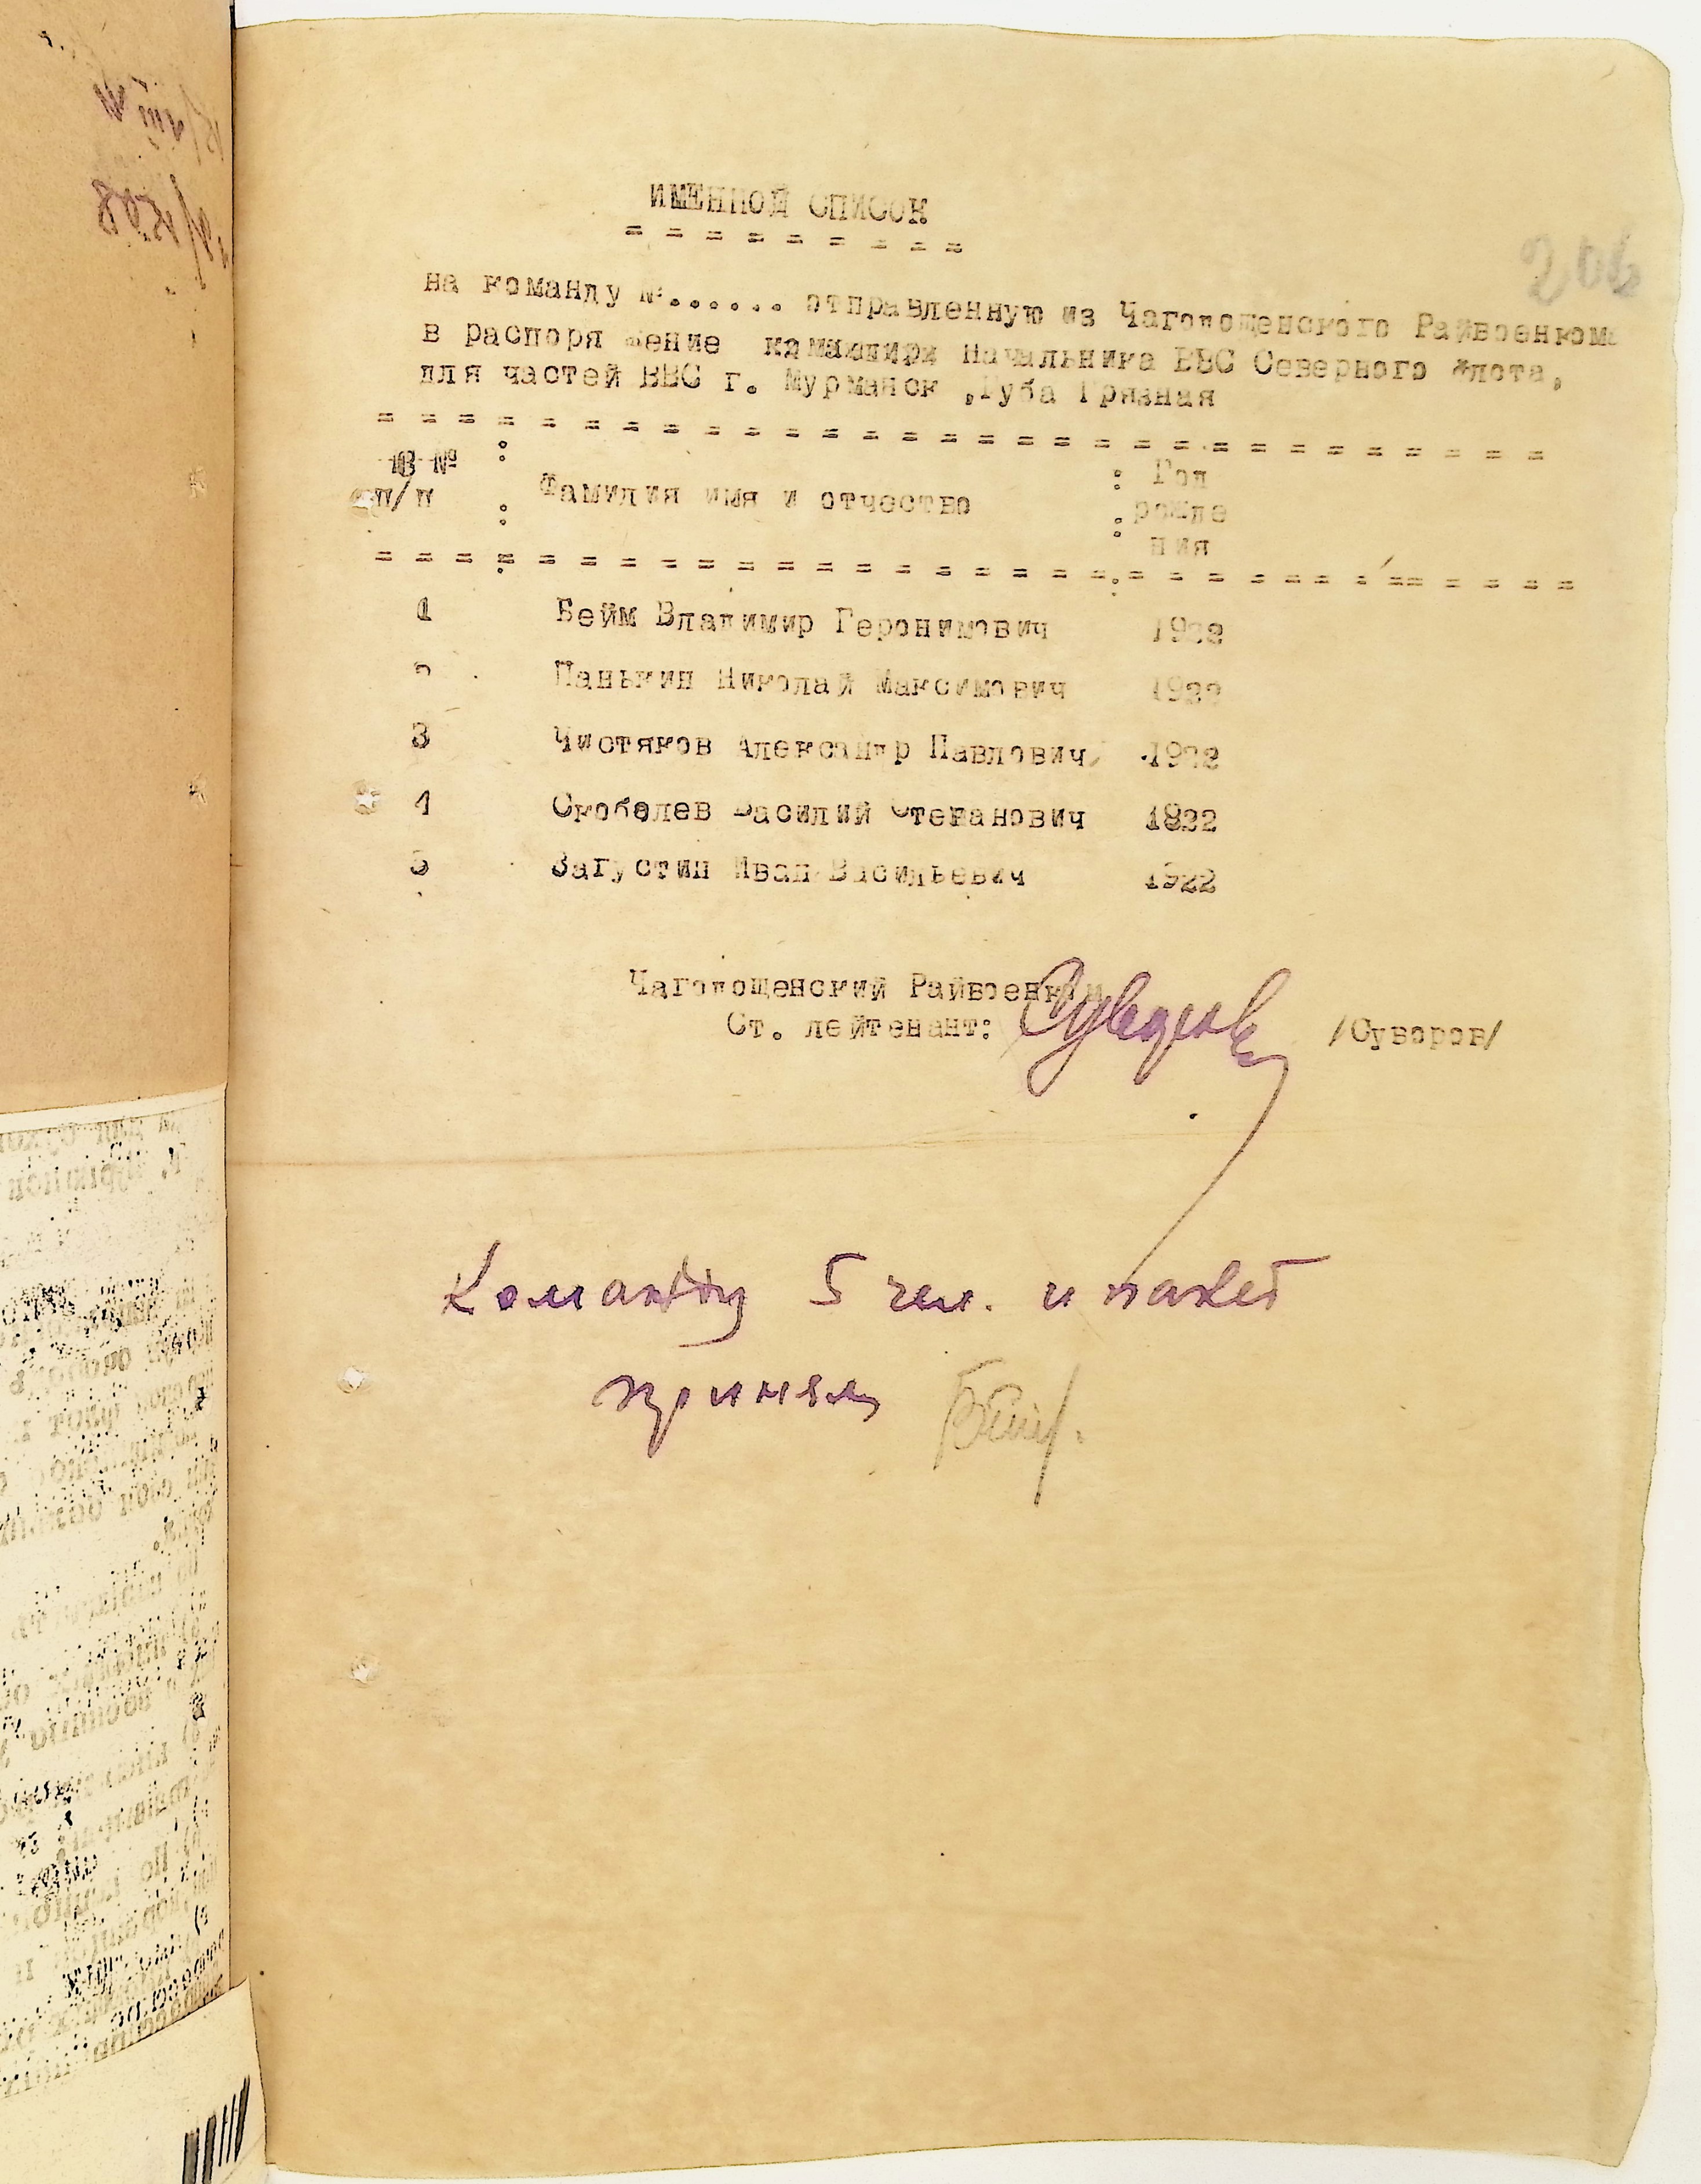 ИМЕННОЙ СПИСОК
на команду №...... отправленную из Чагодощенского Райвоенкома
в распоряжение Начальника ВВС Северного Флота,
для частей ВВС г. Мурманск ,Губа Грязная
№ №
п/п
Фамилия имя и отчество
Год
рожде
ния
1 Бейм Владимир Геронимович 1922
2 Панькин Николай Максимович 1922
3 Чистяков Александр Павлович 1922
4 Скобелев Василий Степанович 1922
5 Загустин Иван Васильевич 1922
Чагодощенский Райвоенком
Ст. лейтенант: Суворов /Суворов/
Команду 5 чел. и пакет
принял Бейм.